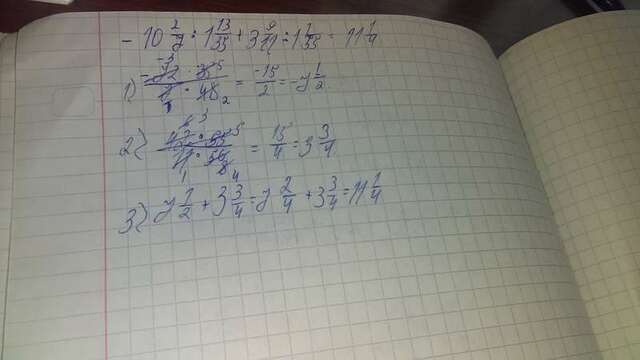 - 10 2/7 : 1 13/35 + 3 9/11 : 1 1/55 = 11 1/4
1) -72 · 35 / 7 · 48 = -15/2 = -7 1/2
2) 42 · 55 / 11 · 56 = 15/4 = 3 3/4
3) 7 1/2 + 3 3/4 = 7 2/4 + 3 3/4 = 11 1/4